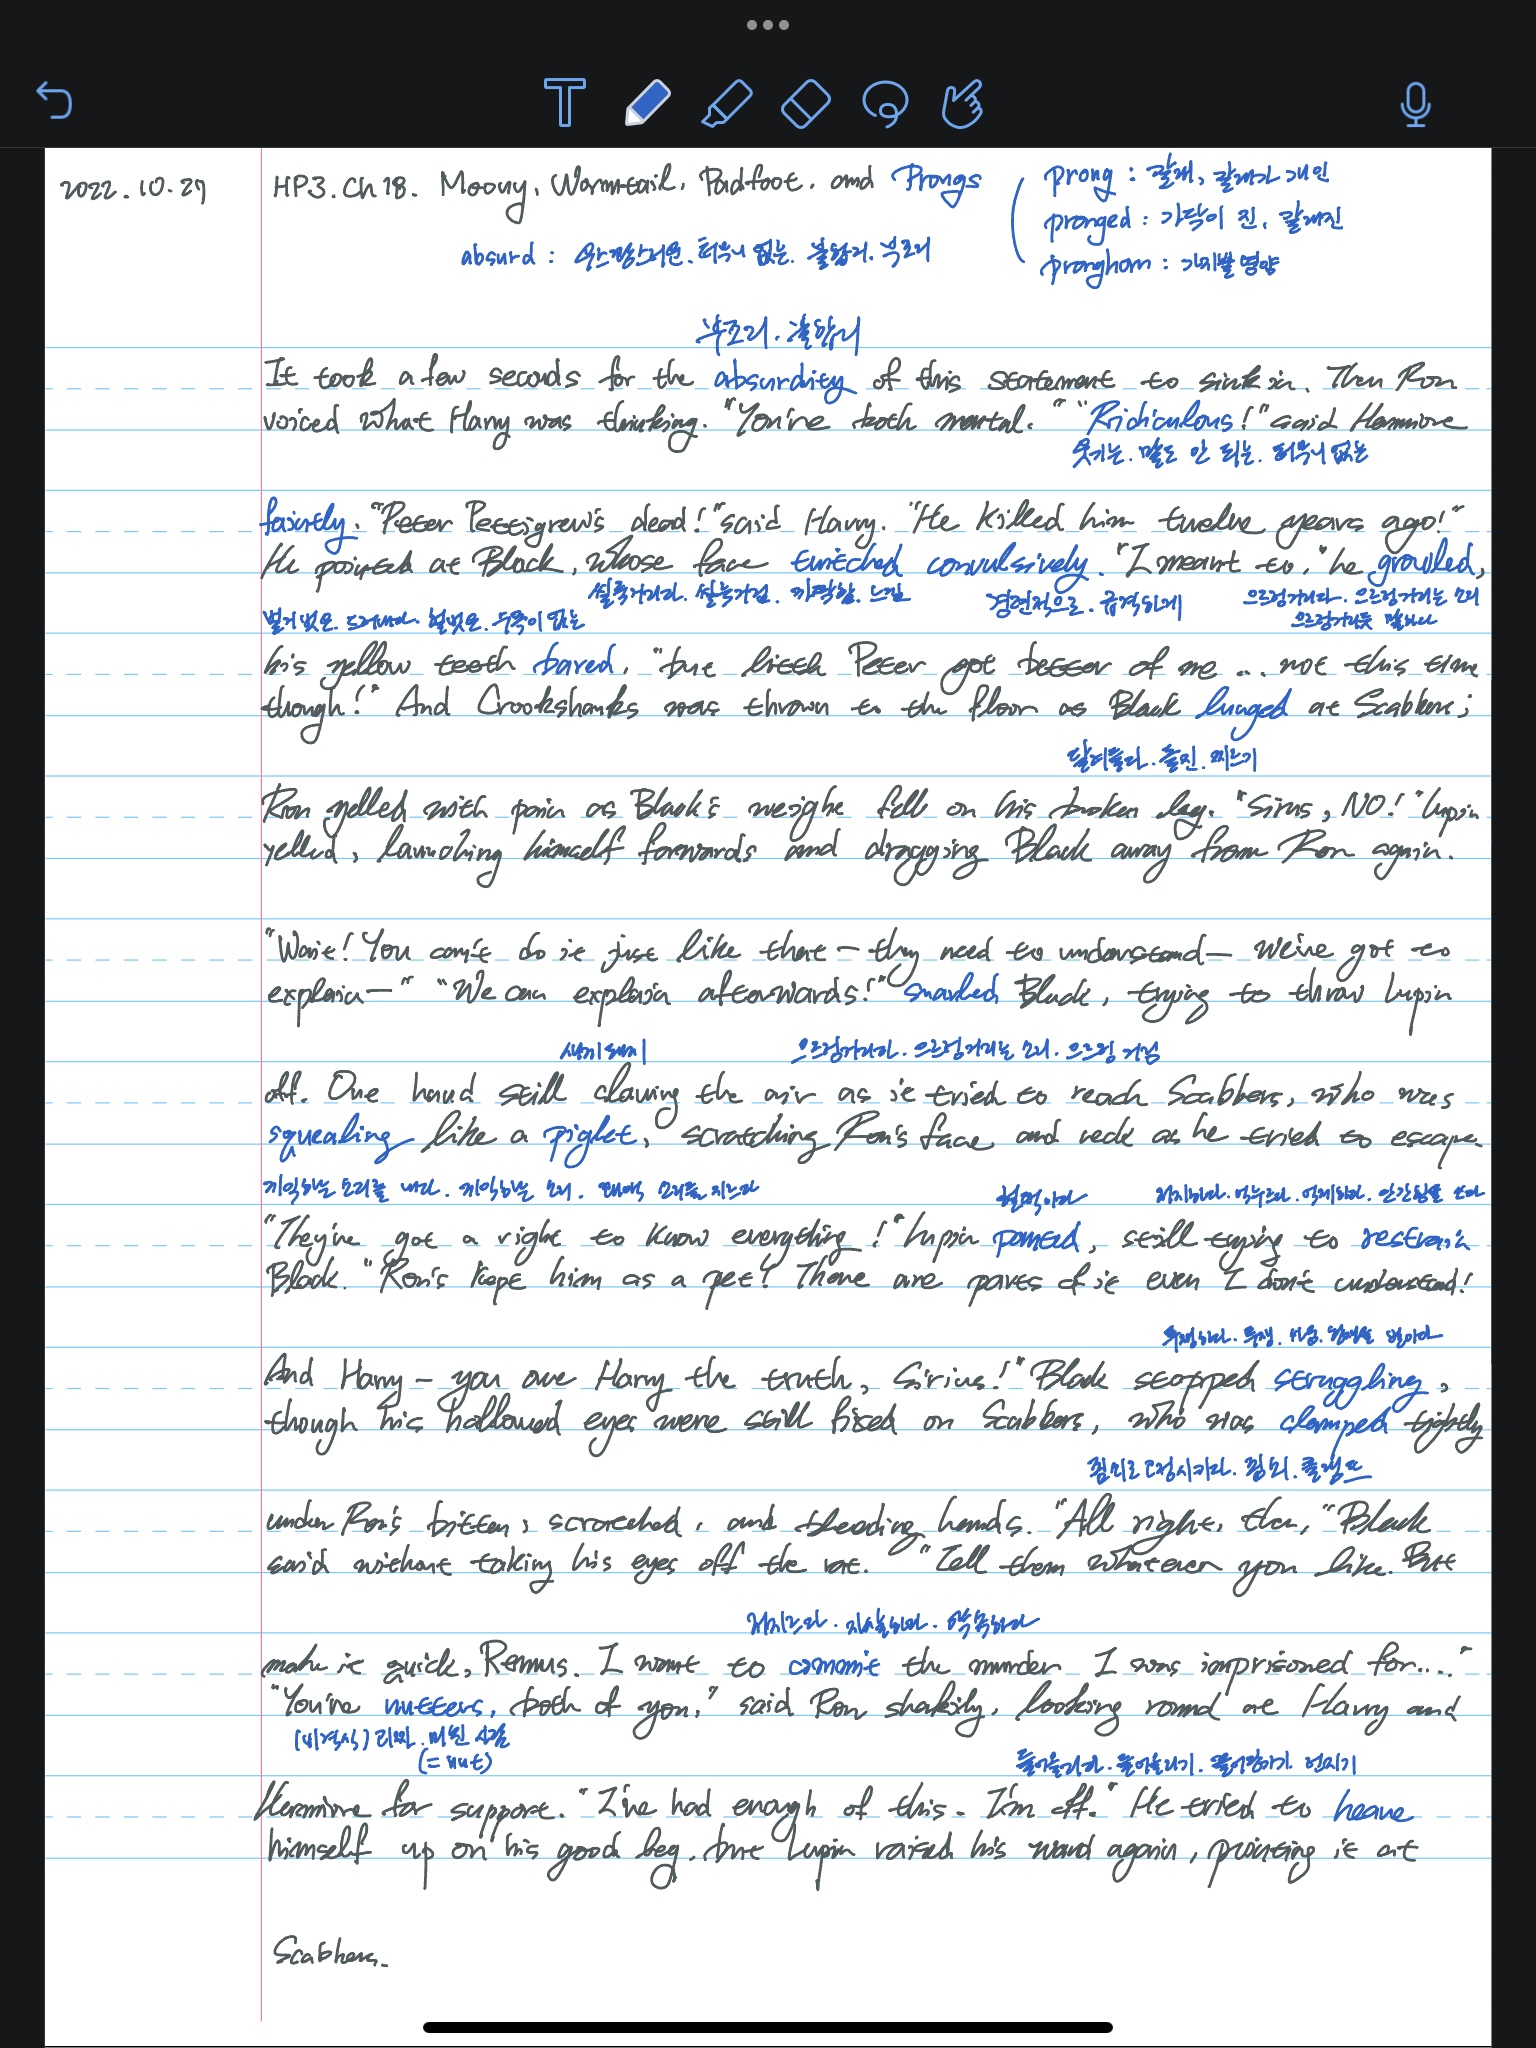 2022.10.27
HP3. Ch 18. Moony, Wormtail, Padfoot, and Prongs
prong : 갈래, 갈래가 개인
pronged : 가닥이 진, 갈래진
absurd : 우스꽝스러운. 터무니 없는. 불합리. 부조리
pronghorn : 가지뿔영양
부조리. 불합리
It took a few seconds for the absurdity of this statement to sink in. Then Ron
voiced what Harry was thinking. "You're both mental." "Ridiculous!" said Hermione
웃기는. 말도 안 되는. 터무니 없는
faintly. "Peter Pettigrew's dead!" said Harry. "He killed him twelve years ago!"
He pointed at Black, whose face twitched convulsively. "I meant to," he growled,
씰룩거리다. 씰룩거림. 느낌
경련적으로. 급격하게
으르렁거리다. 으르렁거리는 소리
벌거벗은. 드러내다. 헐벗은.
으르렁거리듯 말하다
his yellow teeth bared, "but little Peter got better of me ... not this time
though!" And Crookshanks was thrown to the floor as Black lunged at Scabbers;
달려들다. 돌진. 찌르기
Ron yelled with pain as Black's weight fell on his broken leg. "Sirus, NO!" Lupin
yelled, launching himself forwards and dragging Black away from Ron again.
"Wait! You can't do it just like that — they need to understand — we've got to
explain —" "We can explain afterwards!" snarled Black, trying to throw Lupin
새끼 돼지
으르렁거리다. 으르렁거리는 소리. 으르렁 거림
off. One hand still clawing the air as it tried to reach Scabbers, who was
squealing like a piglet, scratching Ron's face and neck as he tried to escape.
끼익하는 소리를 내다. 끼익하는 소리. 꽤액 소리를 지르다
헐떡이다
저지하다. 억누르다. 억제하다. 안간힘을 쓰다
"They've got a right to know everything!" Lupin panted, still trying to restrain
Black. "Ron's kept him as a pet! There are parts of it even I don't understand!
투쟁하다. 투쟁. 싸움. 벌이다
And Harry — you owe Harry the truth, Sirius!" Black stopped struggling,
though his hollowed eyes were still fixed on Scabbers, who was clamped tightly
죔쇠로 고정시키다. 죔쇠. 클램프
under Ron's bitten, scratched, and bleeding hands. "All right, then," Black
said without taking his eyes off the rat. "Tell them whatever you like. But
저지르다. 자살하다. 약속하다
make it quick, Remus. I want to commit the murder I was imprisoned for...."
"You're nutters, both of you," said Ron shakily, looking round at Harry and
(비격식) 괴짜. 미친 사람
(= nut)
들어올리다. 들어올리기. 끌어당기기. 던지기
Hermione for support. "I've had enough of this. I'm off." He tried to heave
himself up on his good leg, but Lupin raised his wand again, pointing it at
Scabbers.